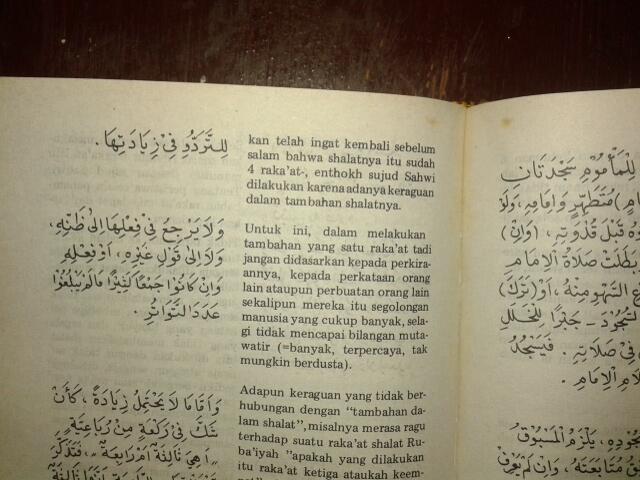 للتردد في زيادتها.
kan telah ingat kembali sebelum
salam bahwa shalatnya itu sudah
4 raka'at-, enthokh sujud Sahwi
dilakukan karena adanya keraguan
dalam tambahan shalatnya.
وَلَا يَرْجِعُ فِي فِعْلِهَا اِلَى ظَنِّهِ،
وَلَا اِلَى قَوْلِ غَيْرِهِ، اَوْ فِعْلِهِ
وَاِنْ كَانُوْا جَمْعًا كَثِيْرًا مَالَمْ يَبْلُغُوْا
عَدَدَ التَّوَاتُرِ.
Untuk ini, dalam melakukan
tambahan yang satu raka'at tadi
jangan didasarkan kepada perkira-
annya, kepada perkataan orang
lain ataupun perbuatan orang lain
sekalipun mereka itu segolongan
manusia yang cukup banyak, sela-
gi tidak mencapai bilangan muta-
watir (=banyak, terpercaya, tak
mungkin berdusta).
وَاَمَّا مَا لَا يَحْتَمِلُ زِيَادَةً، كَاَنْ
شَكَّ فِي رَكْعَةٍ مِنْ رُبَاعِيَّةٍ
اَهِيَ ثَالِثَةٌ اَمْ رَابِعَةٌ، فَتَذَكَّرَ
Adapun keraguan yang tidak ber-
hubungan dengan "tambahan da-
lam shalat", misalnya merasa ragu
terhadap suatu raka'at shalat Ru-
ba'iyah "apakah yang dilakukan
itu raka'at ketiga ataukah keem-
لِلْمَأْمُوْمِ سَجْدَتَانِ
مُتَطَهِّرٍ وَاِمَامِهِ، وَلَوْ
قَبْلَ قُدْوَتِهِ، (وَاِنْ)
بَطَلَتْ صَلَاةُ الْاِمَامِ
السَّهْوِ مِنْهُ، اَوْ (تَرَكَ)
السُّجُوْدَ - جَبْرًا لِلْخَلَلِ
فِي صَلَاتِهِ. فَيَسْجُدُ
الْاِمَامِ.
يَلْزَمُ الْمَسْبُوْقَ
مُتَابَعَتُهُ، وَاِنْ لَمْ يَعْرِفْ